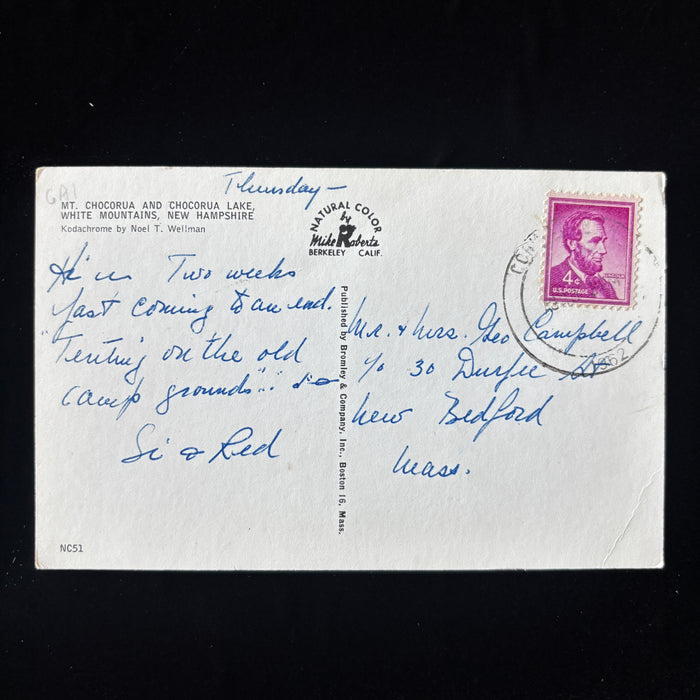 Thursday —
GA1
MT. CHOCORUA AND CHOCORUA LAKE,
WHITE MOUNTAINS, NEW HAMPSHIRE
Kodachrome by Noel T. Wellman
NATURAL COLOR
by
Mike Roberts
BERKELEY CALIF.
4¢
U.S. POSTAGE
1962
Two weeks
fast coming to an end.
"Tenting on the old
camp grounds"
Si & Red
Published by Bromley & Company, Inc., Boston 16, Mass.
Mr. & Mrs. Geo Campbell
% 30 Durfee St
New Bedford
Mass.
NC51